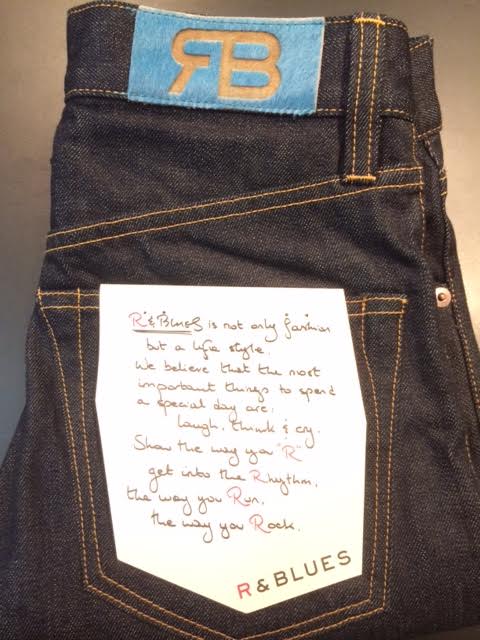 RB
R & Blues is not only fashion
but a life style.
We believe that the most
important things to spend
a special day are:
laugh, think & cry.
Show the way you "R"
get into the Rhythm,
the way you Run,
the way you Rock.
R & BLUES